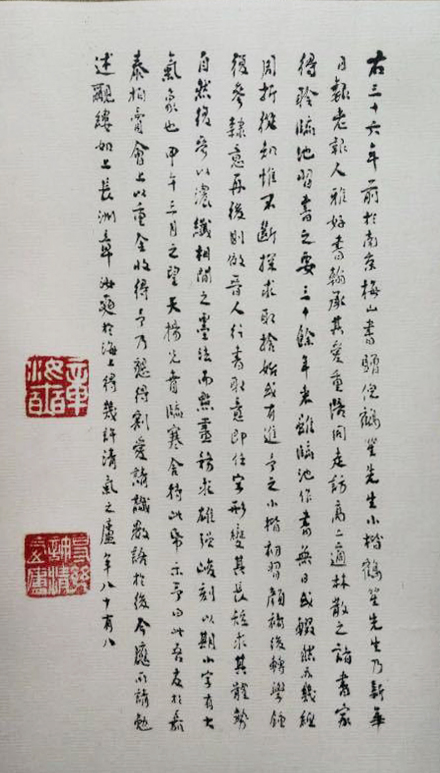 右三十六年前於南京梅山書贈倪鶴笙先生小楷鶴笙先生乃新華
日報老報人雅好書翰承其愛重偕同走訪高二適林散之諸書家
得聆臨池習書之要三十餘年來雖臨池作書無日或輟然幾經
周折從知惟不斷探求取捨始或有進予之小楷初習顏柳後轉學鍾
後參隸意再後則做晉人行書取意即任字形變其長短求其體勢
自然後容以濃纖相間之墨法而點畫務求雄強峻刻以期小字有大
氣象也甲午三月之望天揚兄齎臨寒舍持此帋示予曰此吾友於嘉
泰拍賣會上以重金收得予乃懇得割愛請識數語於後今應所請勉
述覼縷如上長洲章汝奭於海上得幾許清氣之廬年八十有八